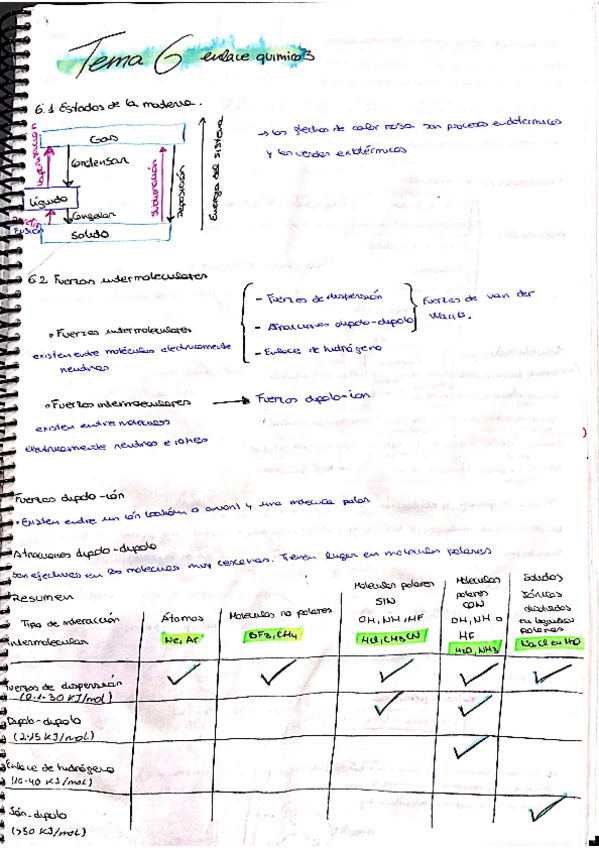 Tema 6 enlace quimico 3
6.1 Estados de la materia.
Gas
→ las flechas de color rosa son procesos endotérmicos
y las verdes exotérmicos
Condensar
Líquido
Congelar
Fusión
Solido
Sublimación
Deposición
Energía del sistema
6.2 Fuerzas intermoleculares
• Fuerzas intermoleculares
existen entre moléculas electricamente
neutras
- Fuerzas de dispersión
- Atracciones dipolo-dipolo
- Enlaces de hidrógeno
Fuerzas de van der
Waals.
• Fuerzas intermoleculares → Fuerzas dipolo-ion
existen entre moleculas
electricamente neutras e iones
Fuerzas dipolo-ión
• Existen entre un ión (catión o anión) y una molecula polar
Atracciones dipolo-dipolo
Son efectivas en las moleculas muy cercanas. Tienen lugar en moleculas polares
Resumen
Tipo de interacción
intermolecular
Átomos
Ne, Ar
Moleculas no polares
BF3, CH4
Moleculas polares
SIN
OH, NH, HF
HCl, CH3CN
Moleculas
polares
CON
OH, NH o
HF
H2O, NH3
Solidos
Iónicos
disueltos
en liquidos
polares
NaCl en H2O
Fuerzas de dispersión ✓ ✓ ✓ ✓ ✓
(0.1-30 KJ/mol)
Dipolo-dipolo ✓ ✓
(2-15 KJ/mol)
Enlace de hidrógeno ✓
(10-40 KJ/mol)
Ión-dipolo ✓
(>50 KJ/mol)